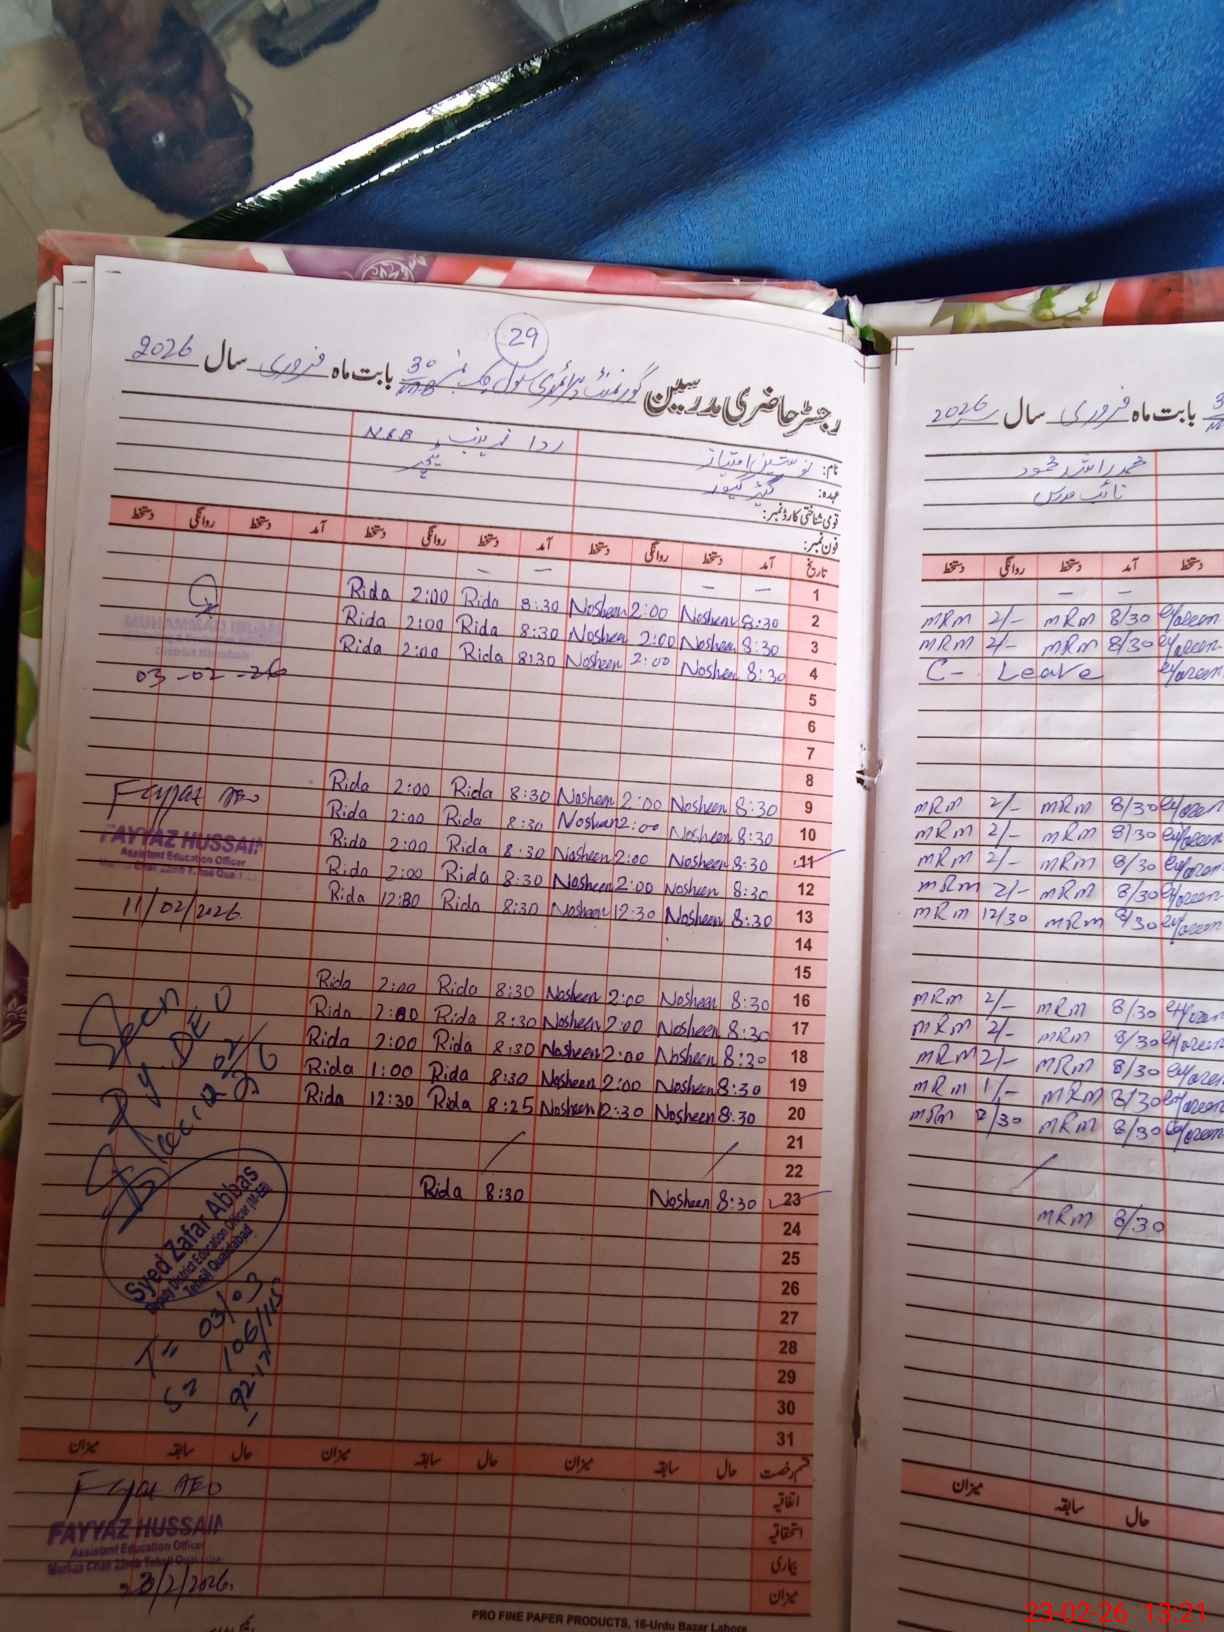 29
رجسٹر حاضری مدرسین گورنمنٹ پرائمری سکول چک نمبر 30/MB بابت ماہ فروری سال 2026
نام: نوشین امتیاز ردا زینب
عہدہ: کیئر گیور ٹیچر
قومی شناختی کارڈ نمبر:
فون نمبر:
تاریخ آمد دستخط روانگی دستخط آمد دستخط روانگی دستخط آمد دستخط روانگی دستخط
1 — — — —
2 8:30 Nosheen 2:00 Nosheen 8:30 Rida 2:00 Rida
3 8:30 Nosheen 2:00 Nosheen 8:30 Rida 2:00 Rida
4 8:30 Nosheen 2:00 Nosheen 8:30 Rida 2:00 Rida
03-02-26
5
6
7
8
9 8:30 Nosheen 2:00 Nosheen 8:30 Rida 2:00 Rida
10 8:30 Nosheen 2:00 Nosheen 8:30 Rida 2:00 Rida
11 8:30 Nosheen 2:00 Nosheen 8:30 Rida 2:00 Rida
12 8:30 Nosheen 2:00 Nosheen 8:30 Rida 2:00 Rida
13 8:30 Nosheen 12:30 Nosheen 8:30 Rida 12:30 Rida
Fayyaz AEO
FAYYAZ HUSSAIN
Assistant Education Officer
11/02/2026
14
15
16 8:30 Nosheen 2:00 Nosheen 8:30 Rida 2:00 Rida
17 8:30 Nosheen 2:00 Nosheen 8:30 Rida 2:00 Rida
18 8:30 Nosheen 2:00 Nosheen 8:30 Rida 2:00 Rida
19 8:30 Nosheen 2:00 Nosheen 8:30 Rida 1:00 Rida
20 8:30 Nosheen 12:30 Nosheen 8:25 Rida 12:30 Rida
21
22
23 8:30 Nosheen 8:30 Rida
24
25
26
27
28
29
30
31
Seen
Dy. DEO
Syed Zafar Abbas
Deputy District Education Officer (M-EE)
Tehsil Quaidabad
T= 03/03
S= 106/115
92.17
قسم رخصت حال سابقہ میزان حال سابقہ میزان حال سابقہ میزان
اتفاقیہ
استحقاقیہ
بیماری
میزان
Fayyaz AEO
FAYYAZ HUSSAIN
Assistant Education Officer
23/2/2026.
PRO FINE PAPER PRODUCTS, 16-Urdu Bazar Lahore
بابت ماہ فروری سال 2026
محمد راشد محمود
نائب مدرس
دستخط آمد دستخط روانگی دستخط
— —
8/30 MRM 2/- MRM
8/30 MRM 2/- MRM
C- Leave
8/30 MRM 2/- MRM
8/30 MRM 2/- MRM
8/30 MRM 2/- MRM
8/30 MRM 2/- MRM
8/30 MRM 12/30 MRM
8/30 MRM 2/- MRM
8/30 MRM 2/- MRM
8/30 MRM 2/- MRM
8/30 MRM 1/- MRM
8/30 MRM MRM
8/30 MRM
حال سابقہ میزان
23-02-26 13:21